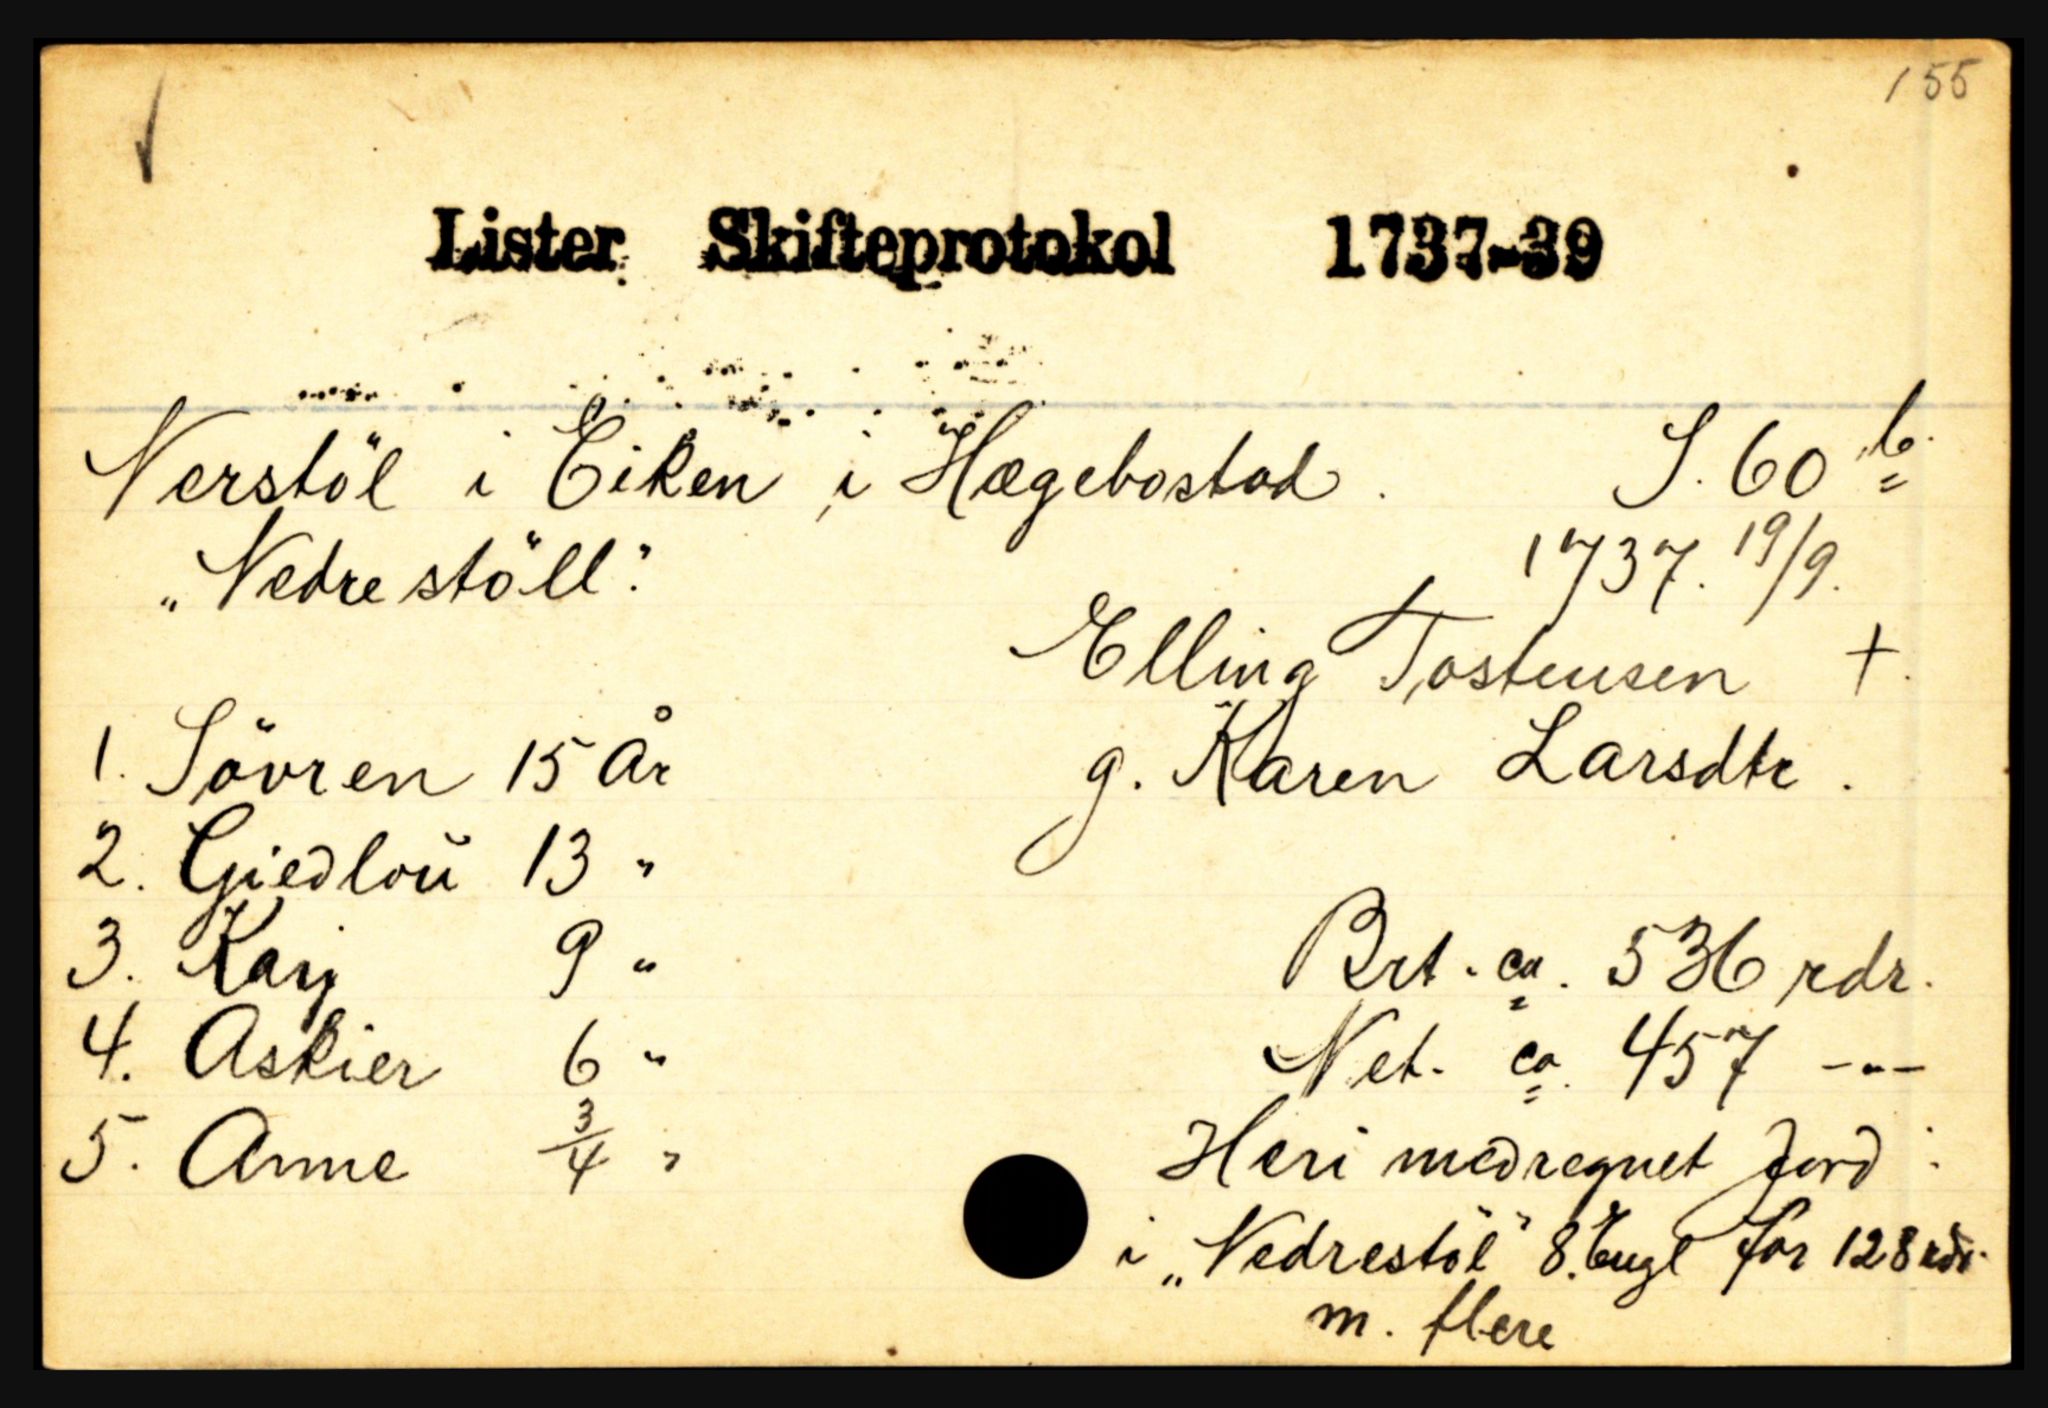 155
Lister Skifteprotokol 1737-39
Nerstöl i Eiken i Hægebostad. S. 60 b.
„Nedrestöll".
1737. 19/9.
Elling Tostensen +.
g. Karen Larsdtr.
1. Sövren 15 år
2. Giedloŭ 13 "
3. Karj 9 "
4. Askier 6 "
5. Anne 3/4 "
Brt. ca. 536 rdr.
Net. ca. 457 -"-
Heri medregnet Jord:
i „Nedrestöl" 8. Engl for 128 rdr.
m. flere